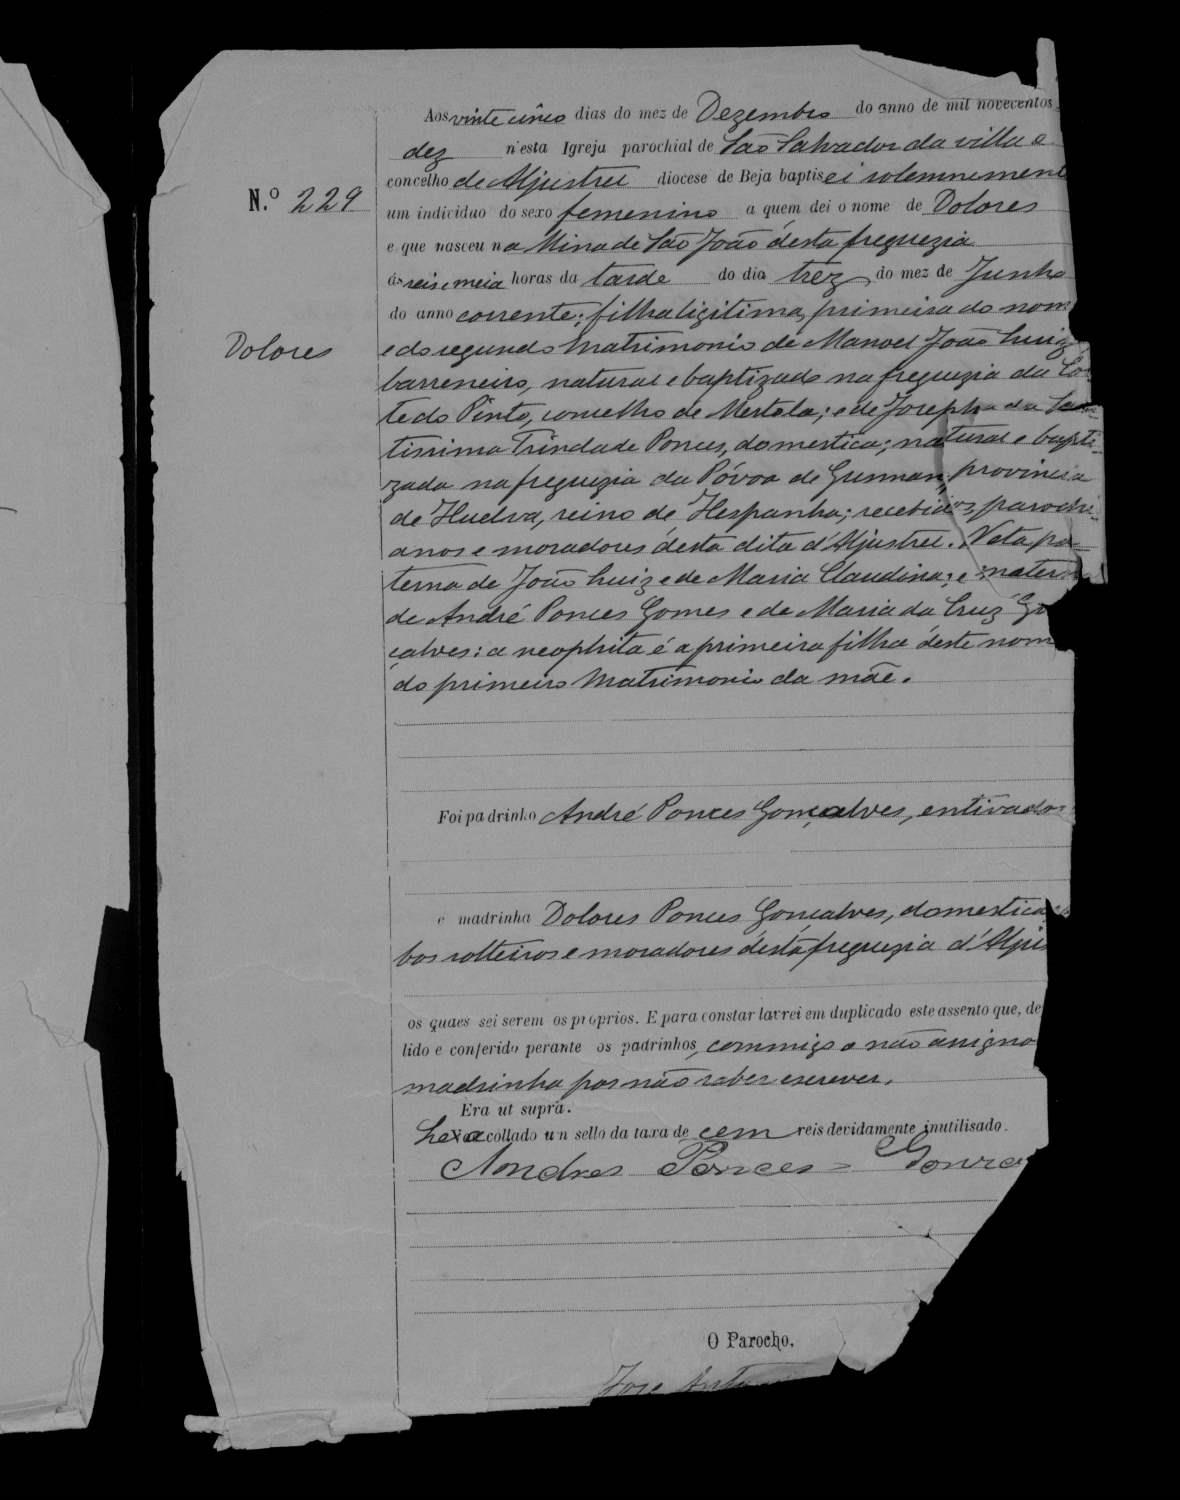 Aos vinte cinco dias do mez de Dezembro do anno de mil novecentos
dez n'esta Igreja parochial de São Salvador da villa e
concelho de Aljustrel diocese de Beja baptisei solemnement
N.º 229
um individuo do sexo femenino a quem dei o nome de Dolores
e que nasceu na Mina de São João désta freguezia
ás seis e meia horas da tarde do dia trez do mez de Junho
do anno corrente; filha ligitima, primeira do nom
Dolores
e do segundo Matrimonio de Manoel João Luiz
barreneiro, natural e baptizado na freguezia da Co
te do Pinto, concelho de Mertola; e de Josepha da San
tissima Trindade Ponces, domestica; natural e bapti-
zada na freguezia da Póvoa de Gusman, provincia
de Huelva, reino de Hespanha; recebidos, parochi-
anos e moradores désta dita d'Aljustrel. Neta pa-
terna de João Luiz e de Maria Claudina; e matern
de André Ponces Gomes e de Maria da Cruz Go
çalves: a neophita é a primeira filha déste nom
do primeiro Matrimonio da mãe.
Foi padrinho André Ponces Gomçalves, entivador
e madrinha Dolores Ponces Gonçalves, domestica,
bos solteiros e moradores désta freguezia d'Aljus
os quaes sei serem os proprios. E para constar lavrei em duplicado este assento que, de
lido e conferido perante os padrinhos, commigo o não assigno
madrinha por não saber escrever.
Era ut supra.
collado un sello da taxa de cem reis devidamente inutilisado.
Andres Ponces = Gonza
O Parocho,
Jose Anto